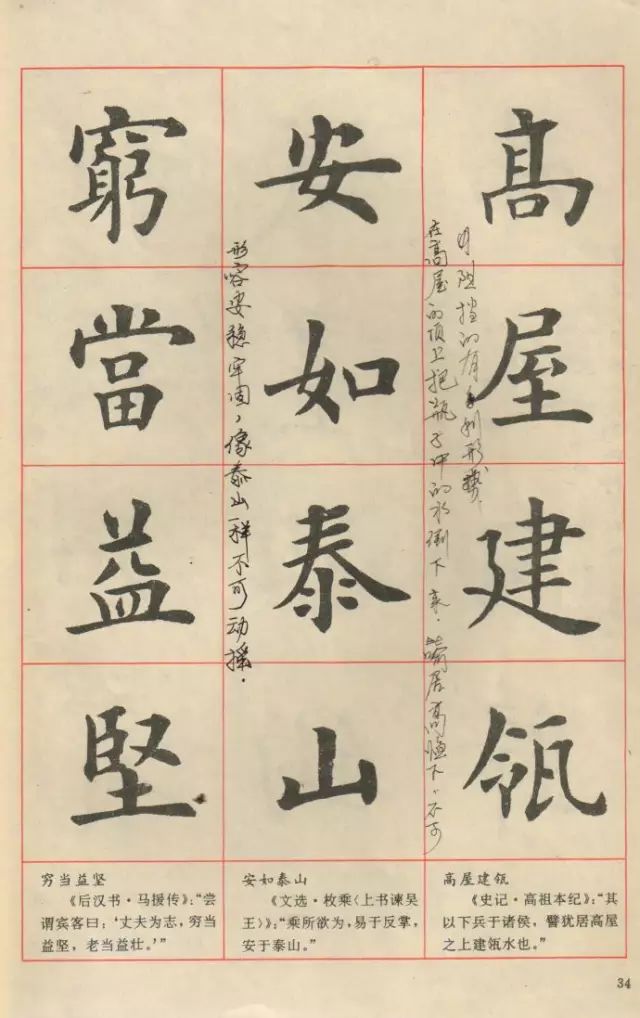 髙屋建瓴
在高屋的顶上把瓶子中的水倒下来.喻居高临下,不可
阻挡的有利形势.
安如泰山
形容安稳牢固,像泰山一样不可动摇.
窮當益堅
高屋建瓴
《史记·高祖本纪》:“其
以下兵于诸侯,譬犹居高屋
之上建瓴水也。”
安如泰山
《文选·枚乘〈上书谏吴
王〉》:“乘所欲为,易于反掌,
安于泰山。”
穷当益坚
《后汉书·马援传》:“尝
谓宾客曰:‘丈夫为志,穷当
益坚,老当益壮。’”
34